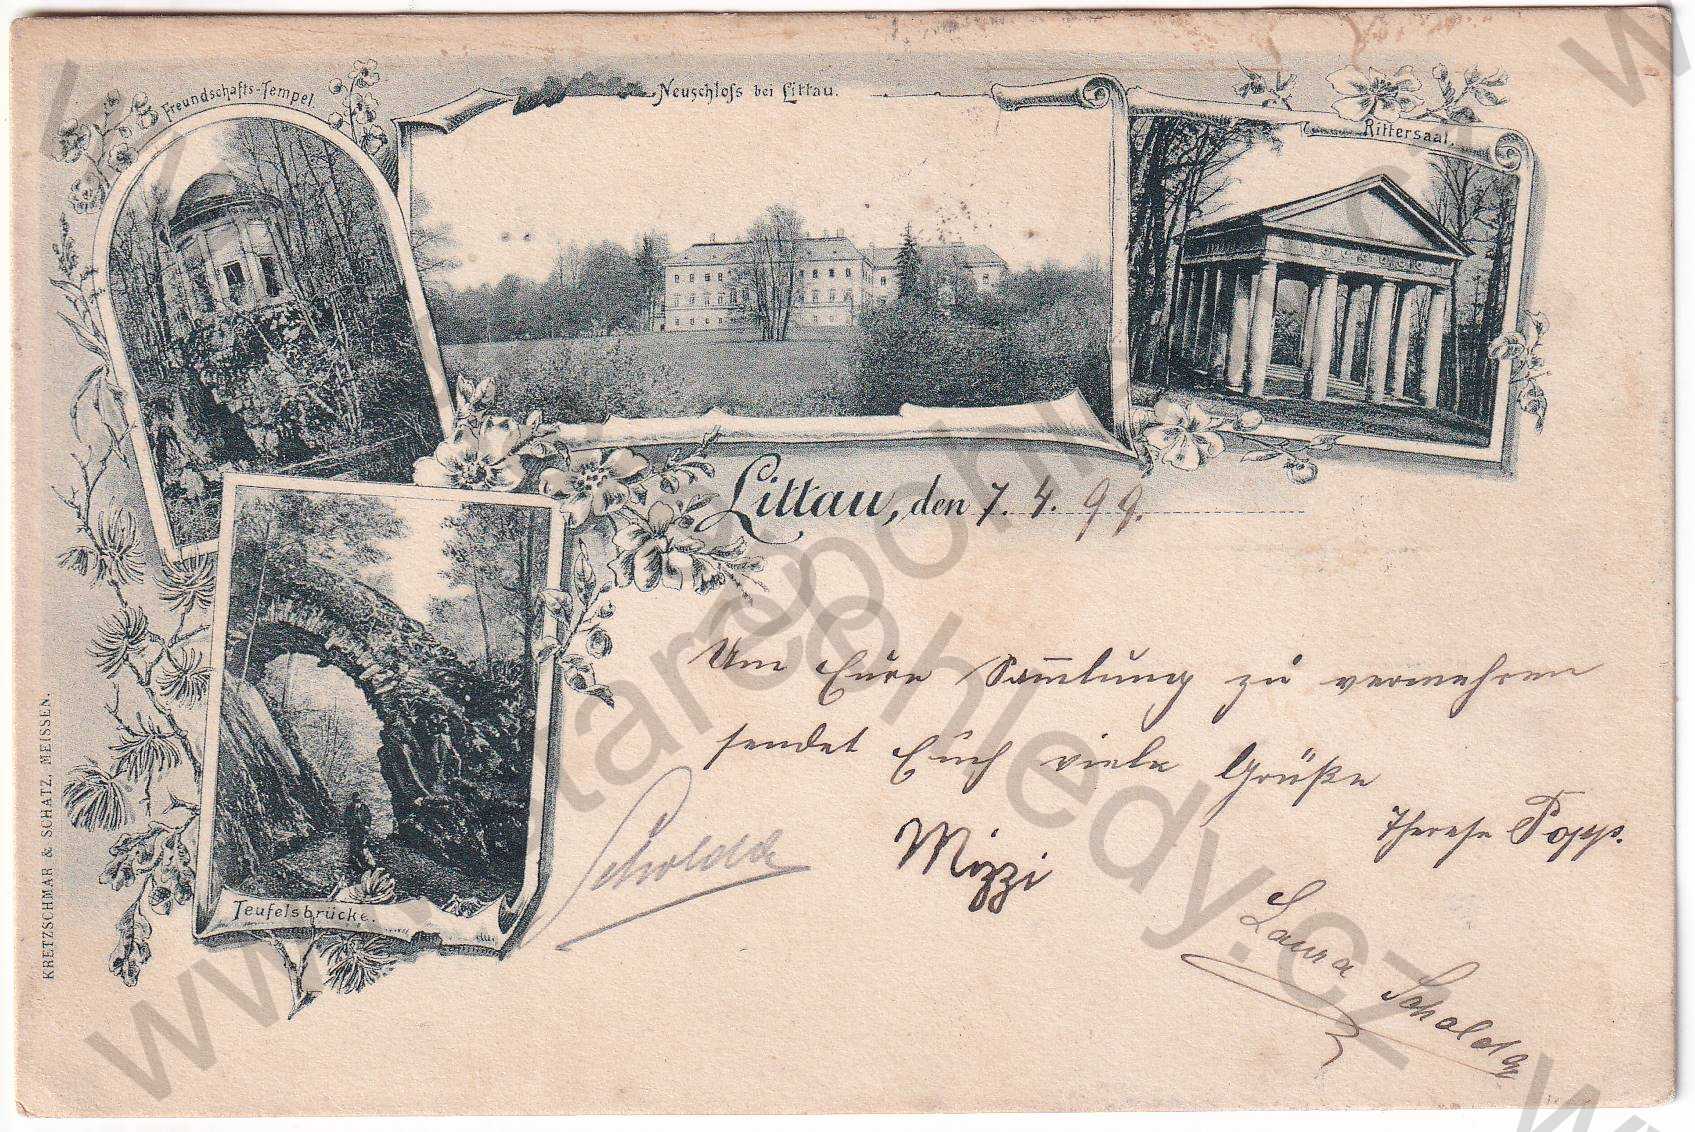 Freundschafts-Tempel.
Neuschloss bei Littau.
Rittersaal.
Littau, den 7. 4. 99.
Um Eure Sam̅lung zu vermehren
sendet Euch viele Grüße
Therese Popp.
Mizzi
Scholda
Laura Scholda
Teufelsbrücke.
KRETZSCHMAR & SCHATZ, MEISSEN.
www.starepohledy.cz